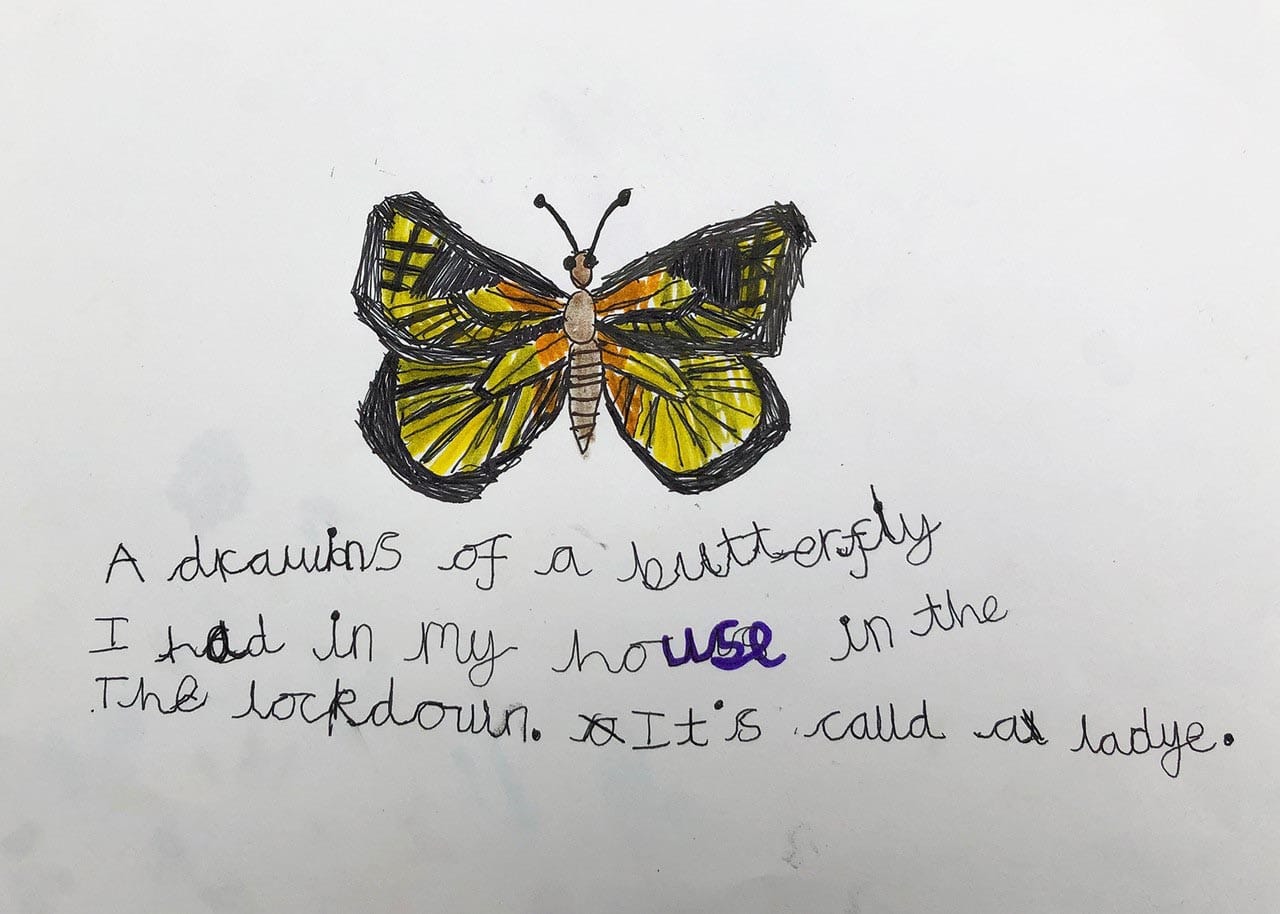 A drawins of a butterfly
I had in my house in the
The lockdown. It's calld a ladye.